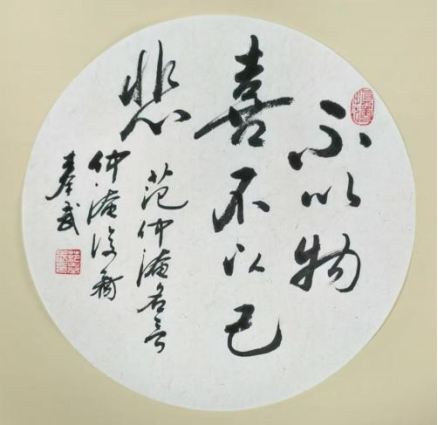 不以物
喜不以己
悲
范仲淹名言
仲淹
春武